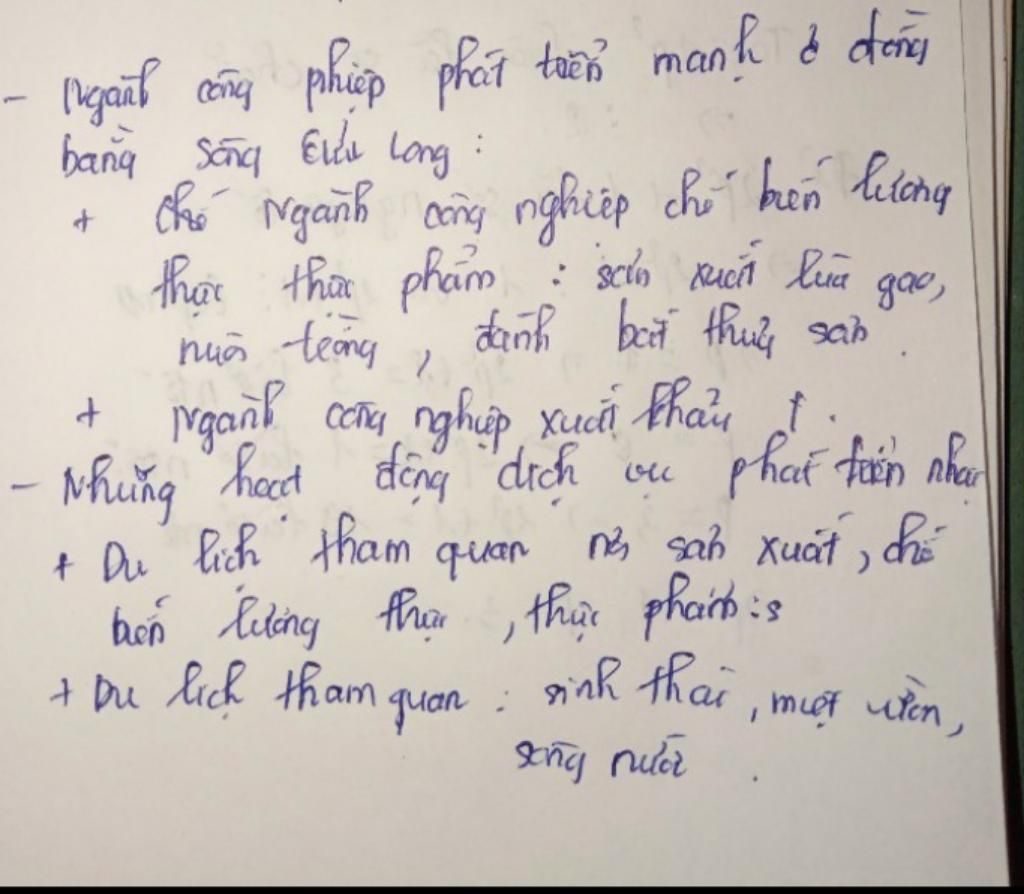 - Ngành công nghiệp phát triển mạnh ở đồng
bằng sông Cửu Long :
+ Chế Ngành công nghiệp chế biến lương
thực thực phẩm : sản xuất lúa gạo,
nuôi trồng, đánh bắt thuỷ sản .
+ Ngành công nghiệp xuất khẩu .
- Những hoạt động dịch vụ phát triển nhất
+ Du lịch tham quan nơi sản xuất, chế
biến lương thực, thực phẩm :
+ Du lịch tham quan : sinh thái, miệt vườn,
sông nước .